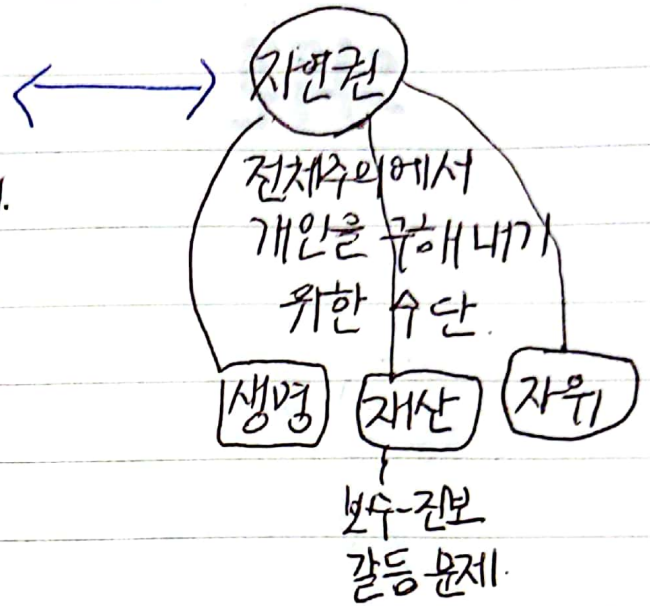 자연권
전체주의에서
개인을 구해내기
위한 수단.
생명 재산 자위
보수-진보
갈등 문제.